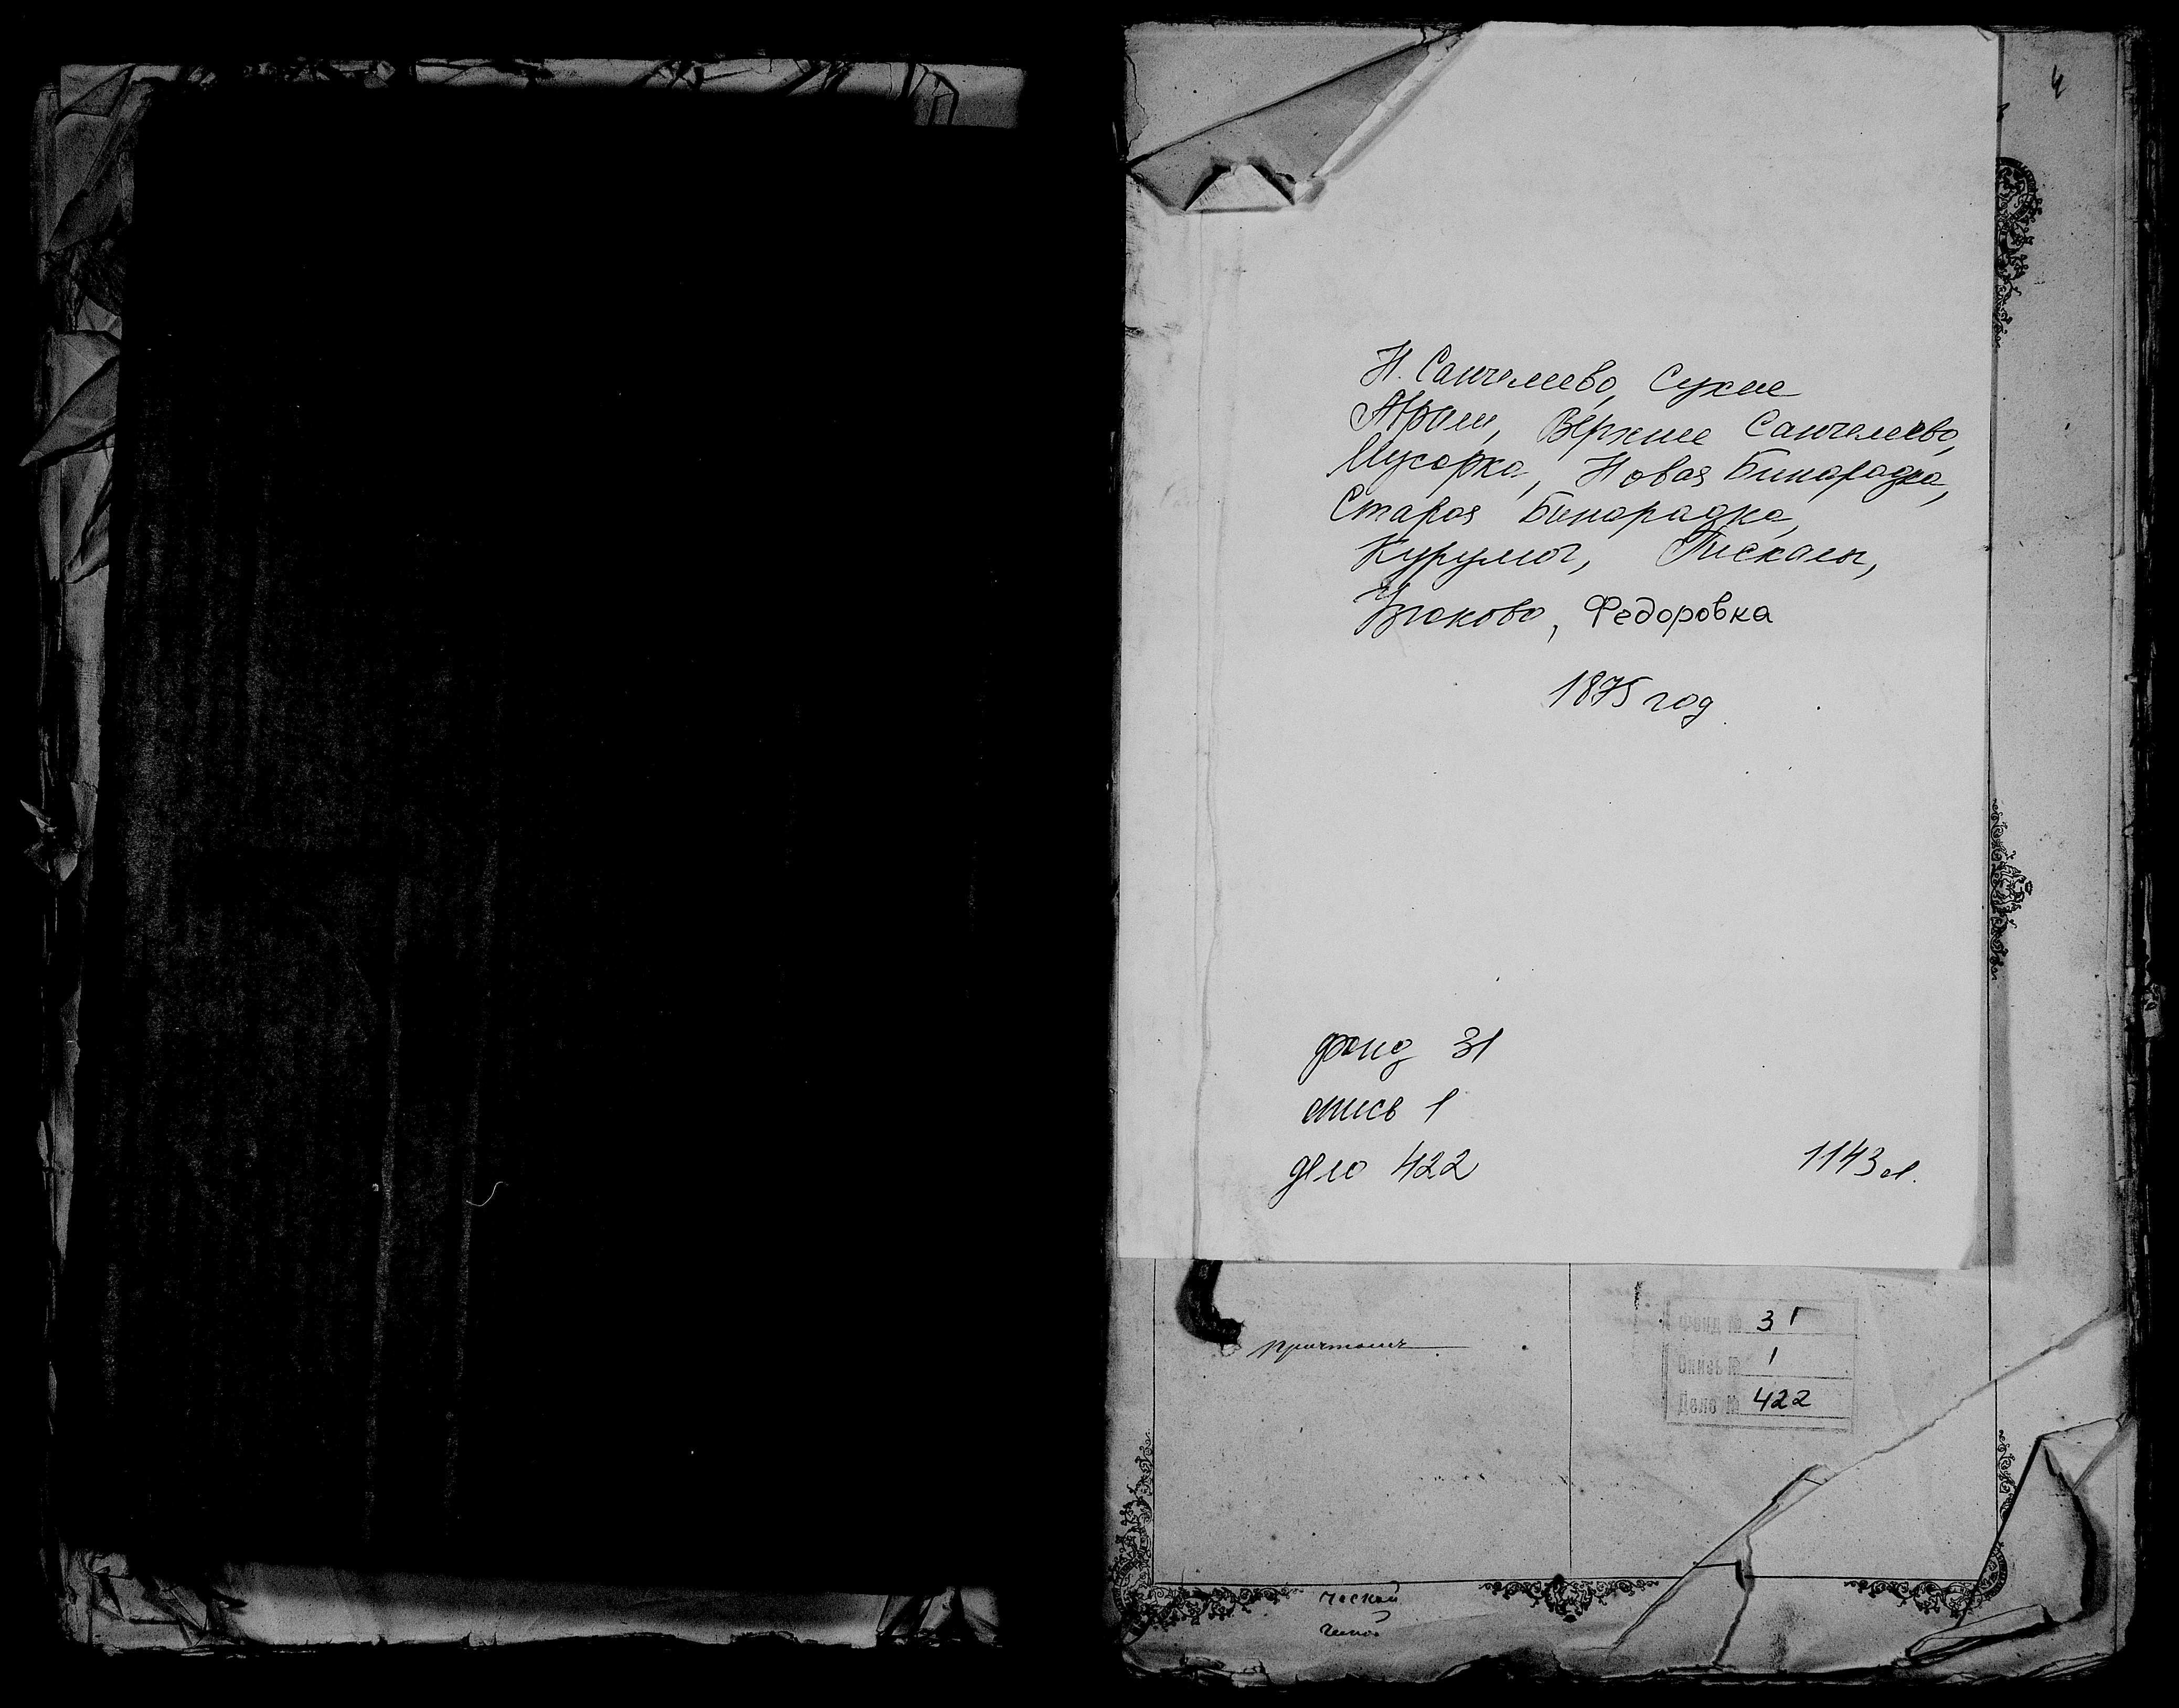 4
Н. Санчелеево, Сухие
Аврали, Верхнее Санчелеево,
Мусорка, Новая Бинарадка,
Старая Бинарадка,
Курумоч, Пискалы,
Узюково, Федоровка
1875 год
фонд 31
опись 1
дело 422
1143 л.
Фонд № 31
Опись № 1
Дело № 422